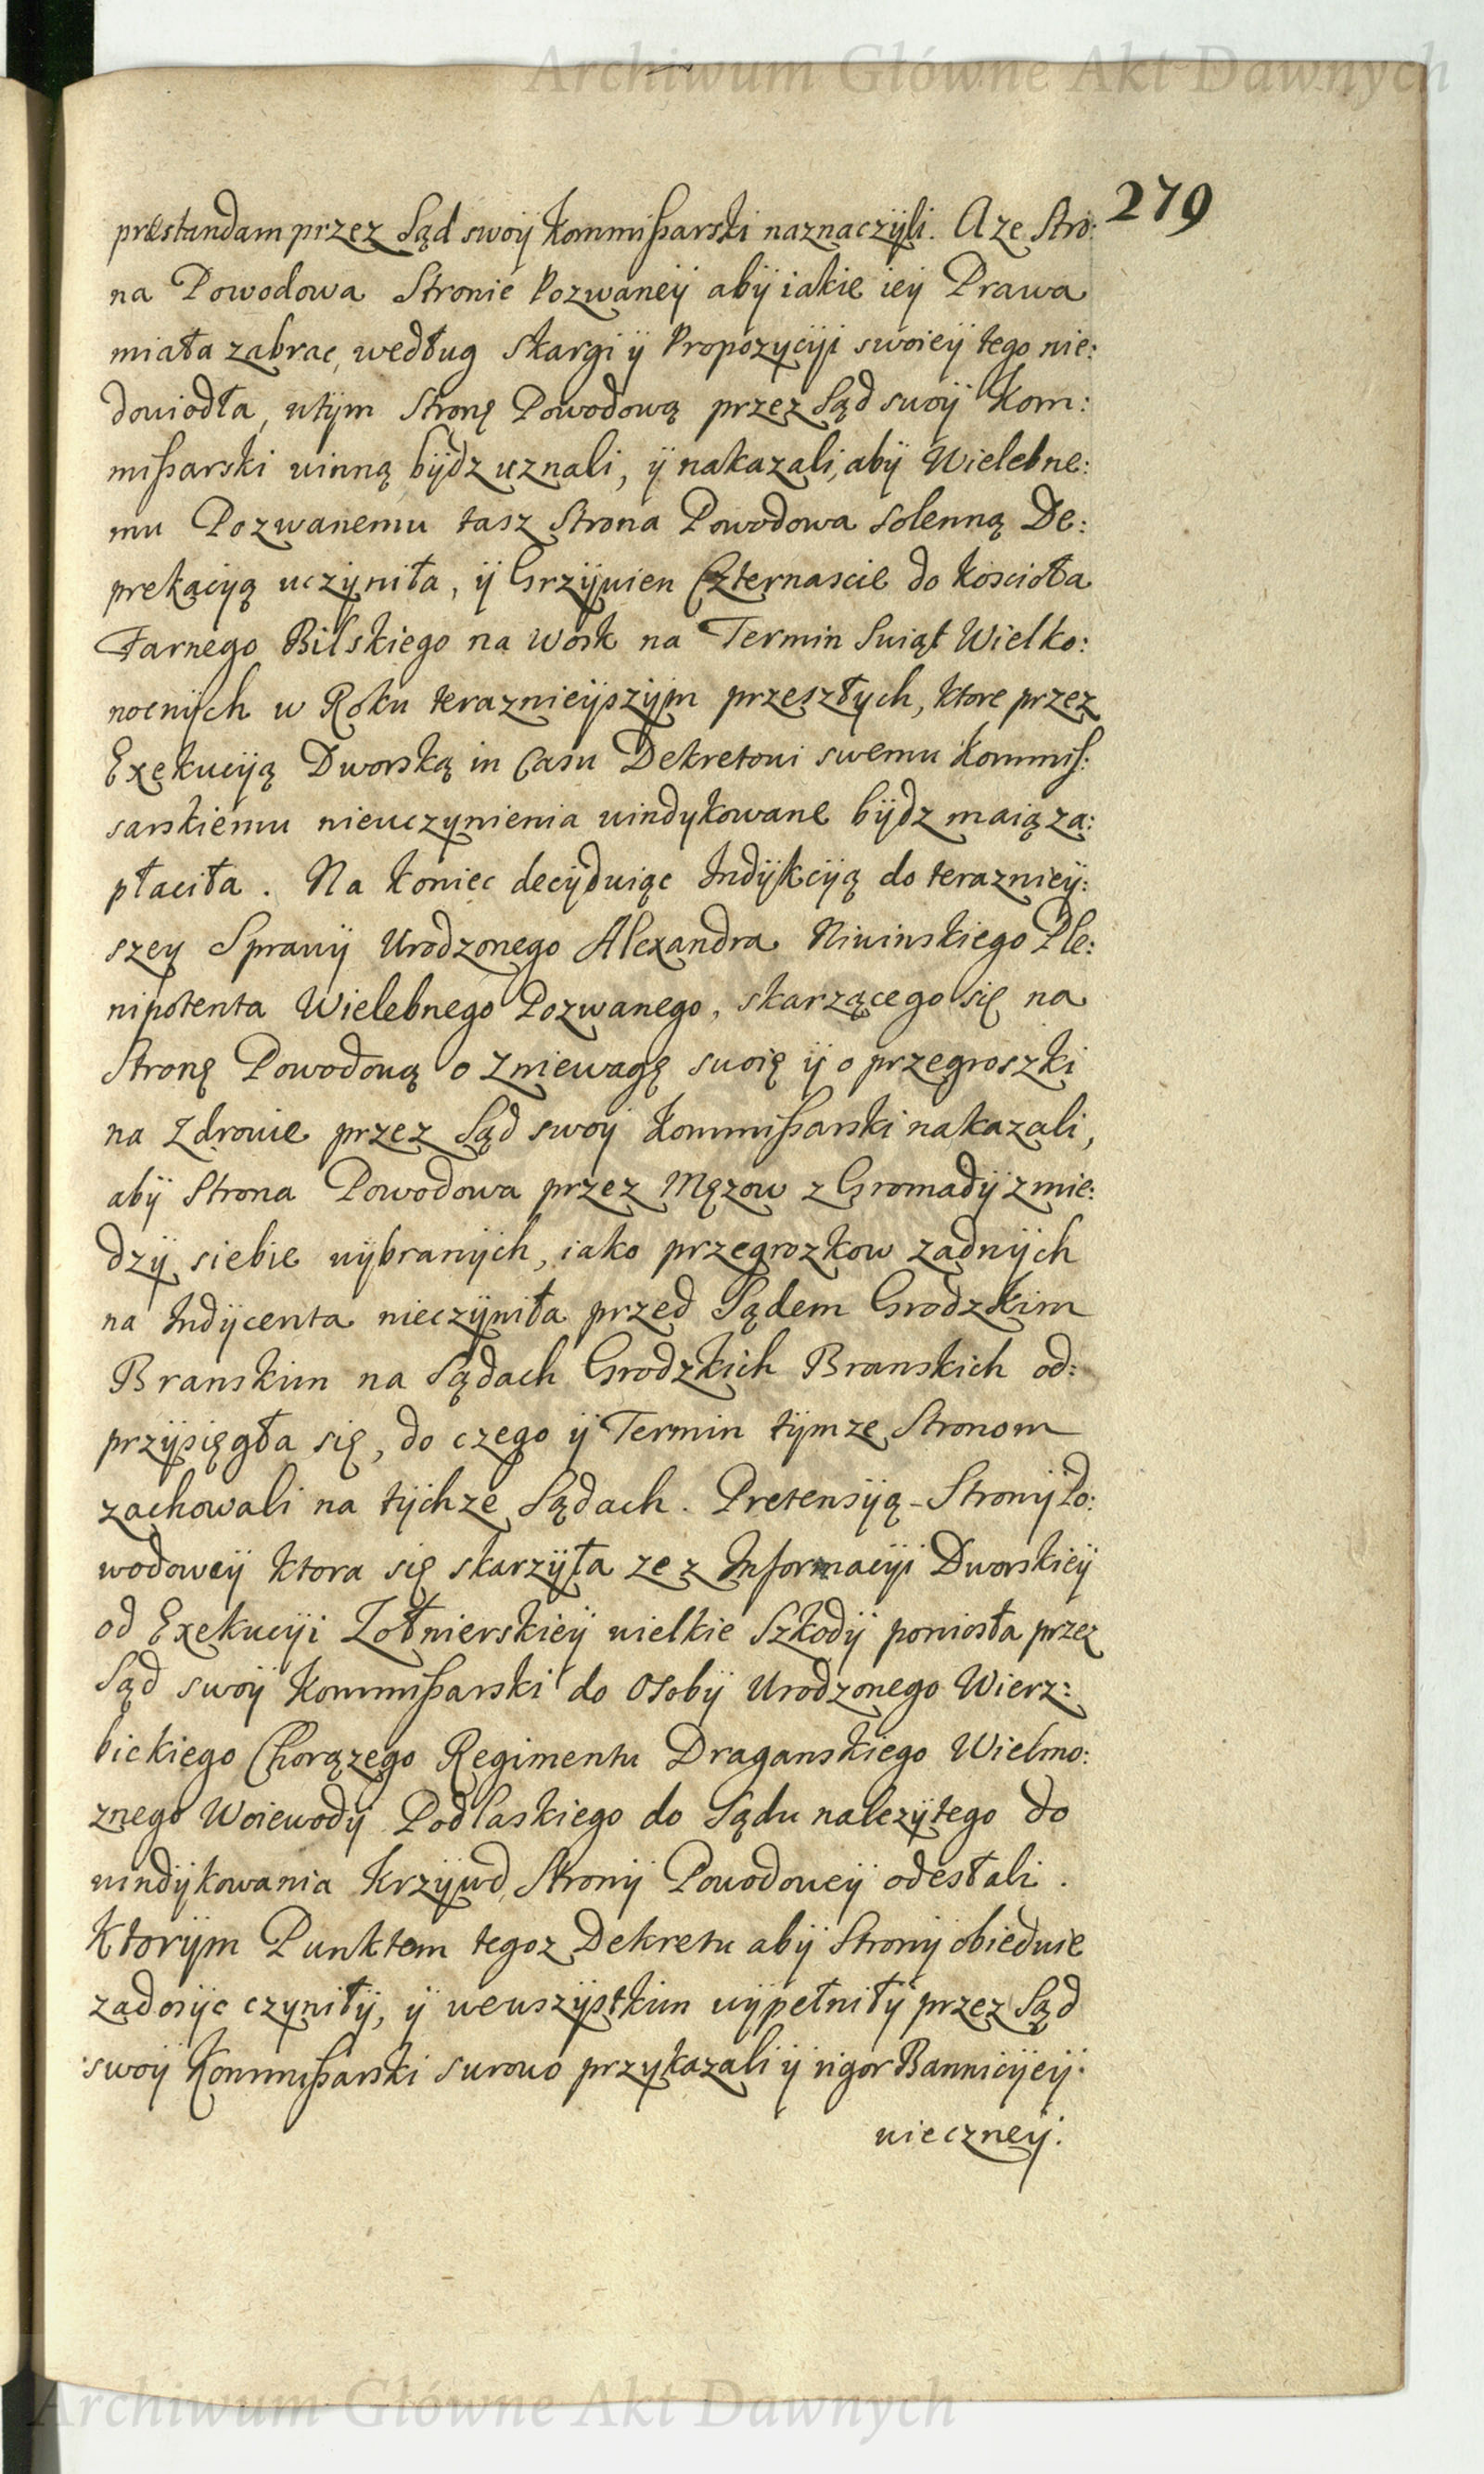 Archiwum Główne Akt Dawnych
279
præstandam przez Sąd swoÿ Kommißarski naznaczÿli. A ze Stro:
na Powodowa Stronie Pozwaneÿ abÿ iakie ieÿ Prawa
miała zabrac, według skargi ÿ Propozÿcÿi swoieÿ tego nie:
dowiodła, wtÿm Stronę Powodową przez Sąd swoÿ Kom:
mißarski winną bÿdz uznali, ÿ nakazali, abÿ Wielebne:
mu Pozwanemu tasz Strona Powodowa solenną De:
prekacÿą uczÿniła, ÿ Grzÿwien Czternascie do Koscioła
Farnego Bilskiego na Wosk na Termin Swiąt Wielko:
nocnÿch w Roku teraznieÿszÿm przeszłych, ktore przez
Exekucÿą Dworską in Casu Dekretowi swemu Kommis:
sarskiemu nieuczynienia windykowane bÿdz maią za:
płaciła. Na koniec decÿduiąc Indÿkcÿą do teraznieÿ:
szeÿ Sprawÿ Urodzonego Alexandra Niwinskiego Ple:
nipotenta Wielebnego Pozwanego, skarzącego się na
Stronę Powodową o Zniewagę swoię ÿ o przegroszki
na Zdrowie przez Sąd swoÿ Kommißarski nakazali,
abÿ Strona Powodowa przez Męzow z Gromadÿ zmie:
dzÿ siebie wÿbranÿch, iako przegrozkow zadnÿch
na Indÿcenta nieczÿniła przed Sądem Grodzkim
Branskim na Sądach Grodzkich Branskich od:
przÿsięgła się, do czego ÿ Termin tÿmze Stronom
zachowali na tÿchze Sądach. Pretensÿą Stronÿ Po:
wodoweÿ ktora się skarzÿła ze z Informacÿi Dworskieÿ
od Exekucÿi Zołnierskieÿ wielkie Szkodÿ poniosła przez
Sąd swoÿ Kommißarski do Osobÿ Urodzonego Wierz:
bickiego Chorązego Regimentu Draganskiego Wielmo:
znego Woiewodÿ Podlaskiego do Sądu nalezÿtego do
windÿkowania Krzÿwd Stronÿ Powodoweÿ odesłali.
Ktorÿm Punktom tegoz Dekretu abÿ Stronÿ obiedwie
zadosÿc czyniłÿ, ÿ wewszÿstkim wÿpełniłÿ przez Sąd
swoÿ Kommißarski surowo przykazali ÿ rigor Bannicÿeÿ
wieczneÿ.
Archiwum Główne Akt Dawnych